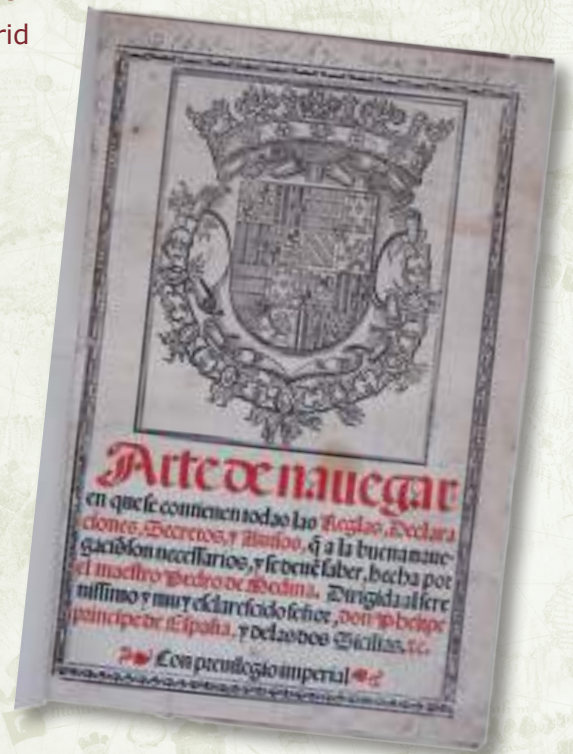 rid
Arte de nauegar
en que se contienen todas las Reglas, Declara
ciones, Secretos, y Auisos, q̃ a la buena naue-
gaciõ son necessarios, y se deuẽ saber, hecha por
el maestro Pedro de Medina. Dirigida al sere
nissimo y muy esclarescido señor, don Phelipe
principe de España, y delas dos Sicilias. ⁊c.
Con preuilegio imperial